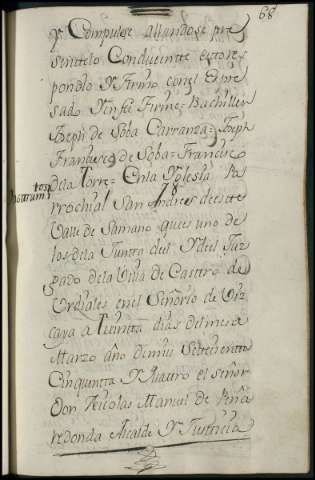 68
Y Compulse allandose pre
sente lo Conducentte esto res
pondio Y firmo con el Expre
sado Ynfra firme= Bachiller
Joseph de Soba Carranza= Joseph
Francisco de Soba= Francisco
de la Torre= En la Yglesia Pa
rrochial San Andres de este
Valle de Samano que es uno de
los de la Juntta del Y del Juz
gado de la Villa de Casttro de
Urdiales en el Señorio de Viz
caya a Treintta dias del mes de
Marzo año de mil Settecientos
Cinquentta Y Quattro el señor
Don Nicolas Manuel de Peña
redonda Alcalde Y Justticia